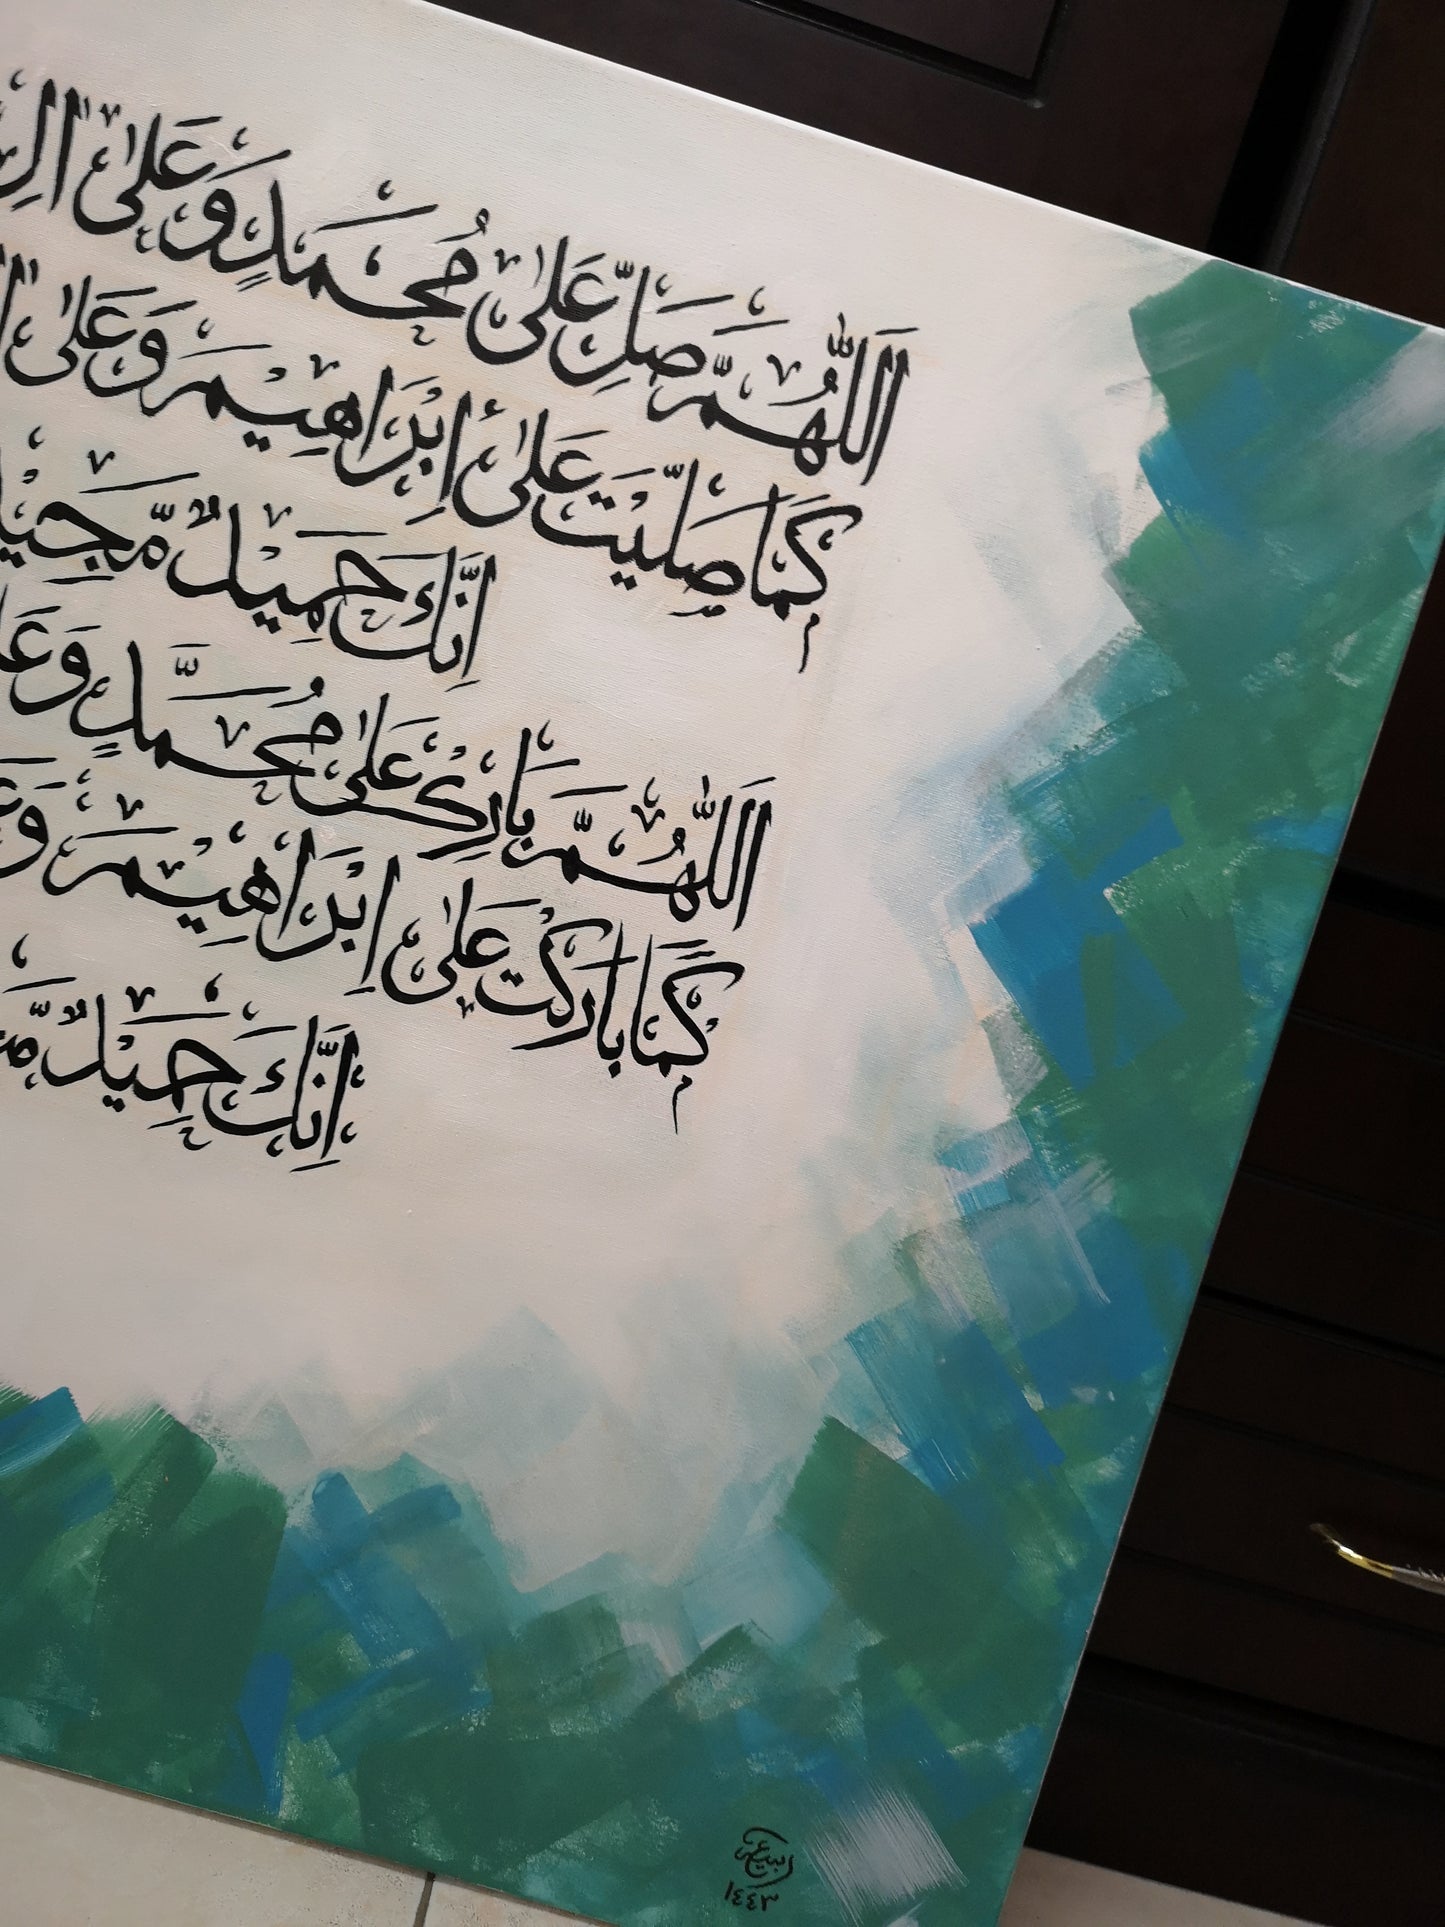 اَللّٰهُمَّ صَلِّ عَلٰى مُحَمَّدٍ وَعَلٰى اٰلِ
كَمَا صَلَّيْتَ عَلٰى اِبْرَاهِيْمَ وَعَلٰى
اِنَّكَ حَمِيْدٌ مَّجِيْدٌ
اَللّٰهُمَّ بَارِكْ عَلٰى مُحَمَّدٍ وَعَلٰى
كَمَا بَارَكْتَ عَلٰى اِبْرَاهِيْمَ وَعَلٰى
اِنَّكَ حَمِيْدٌ
١٤٤٣